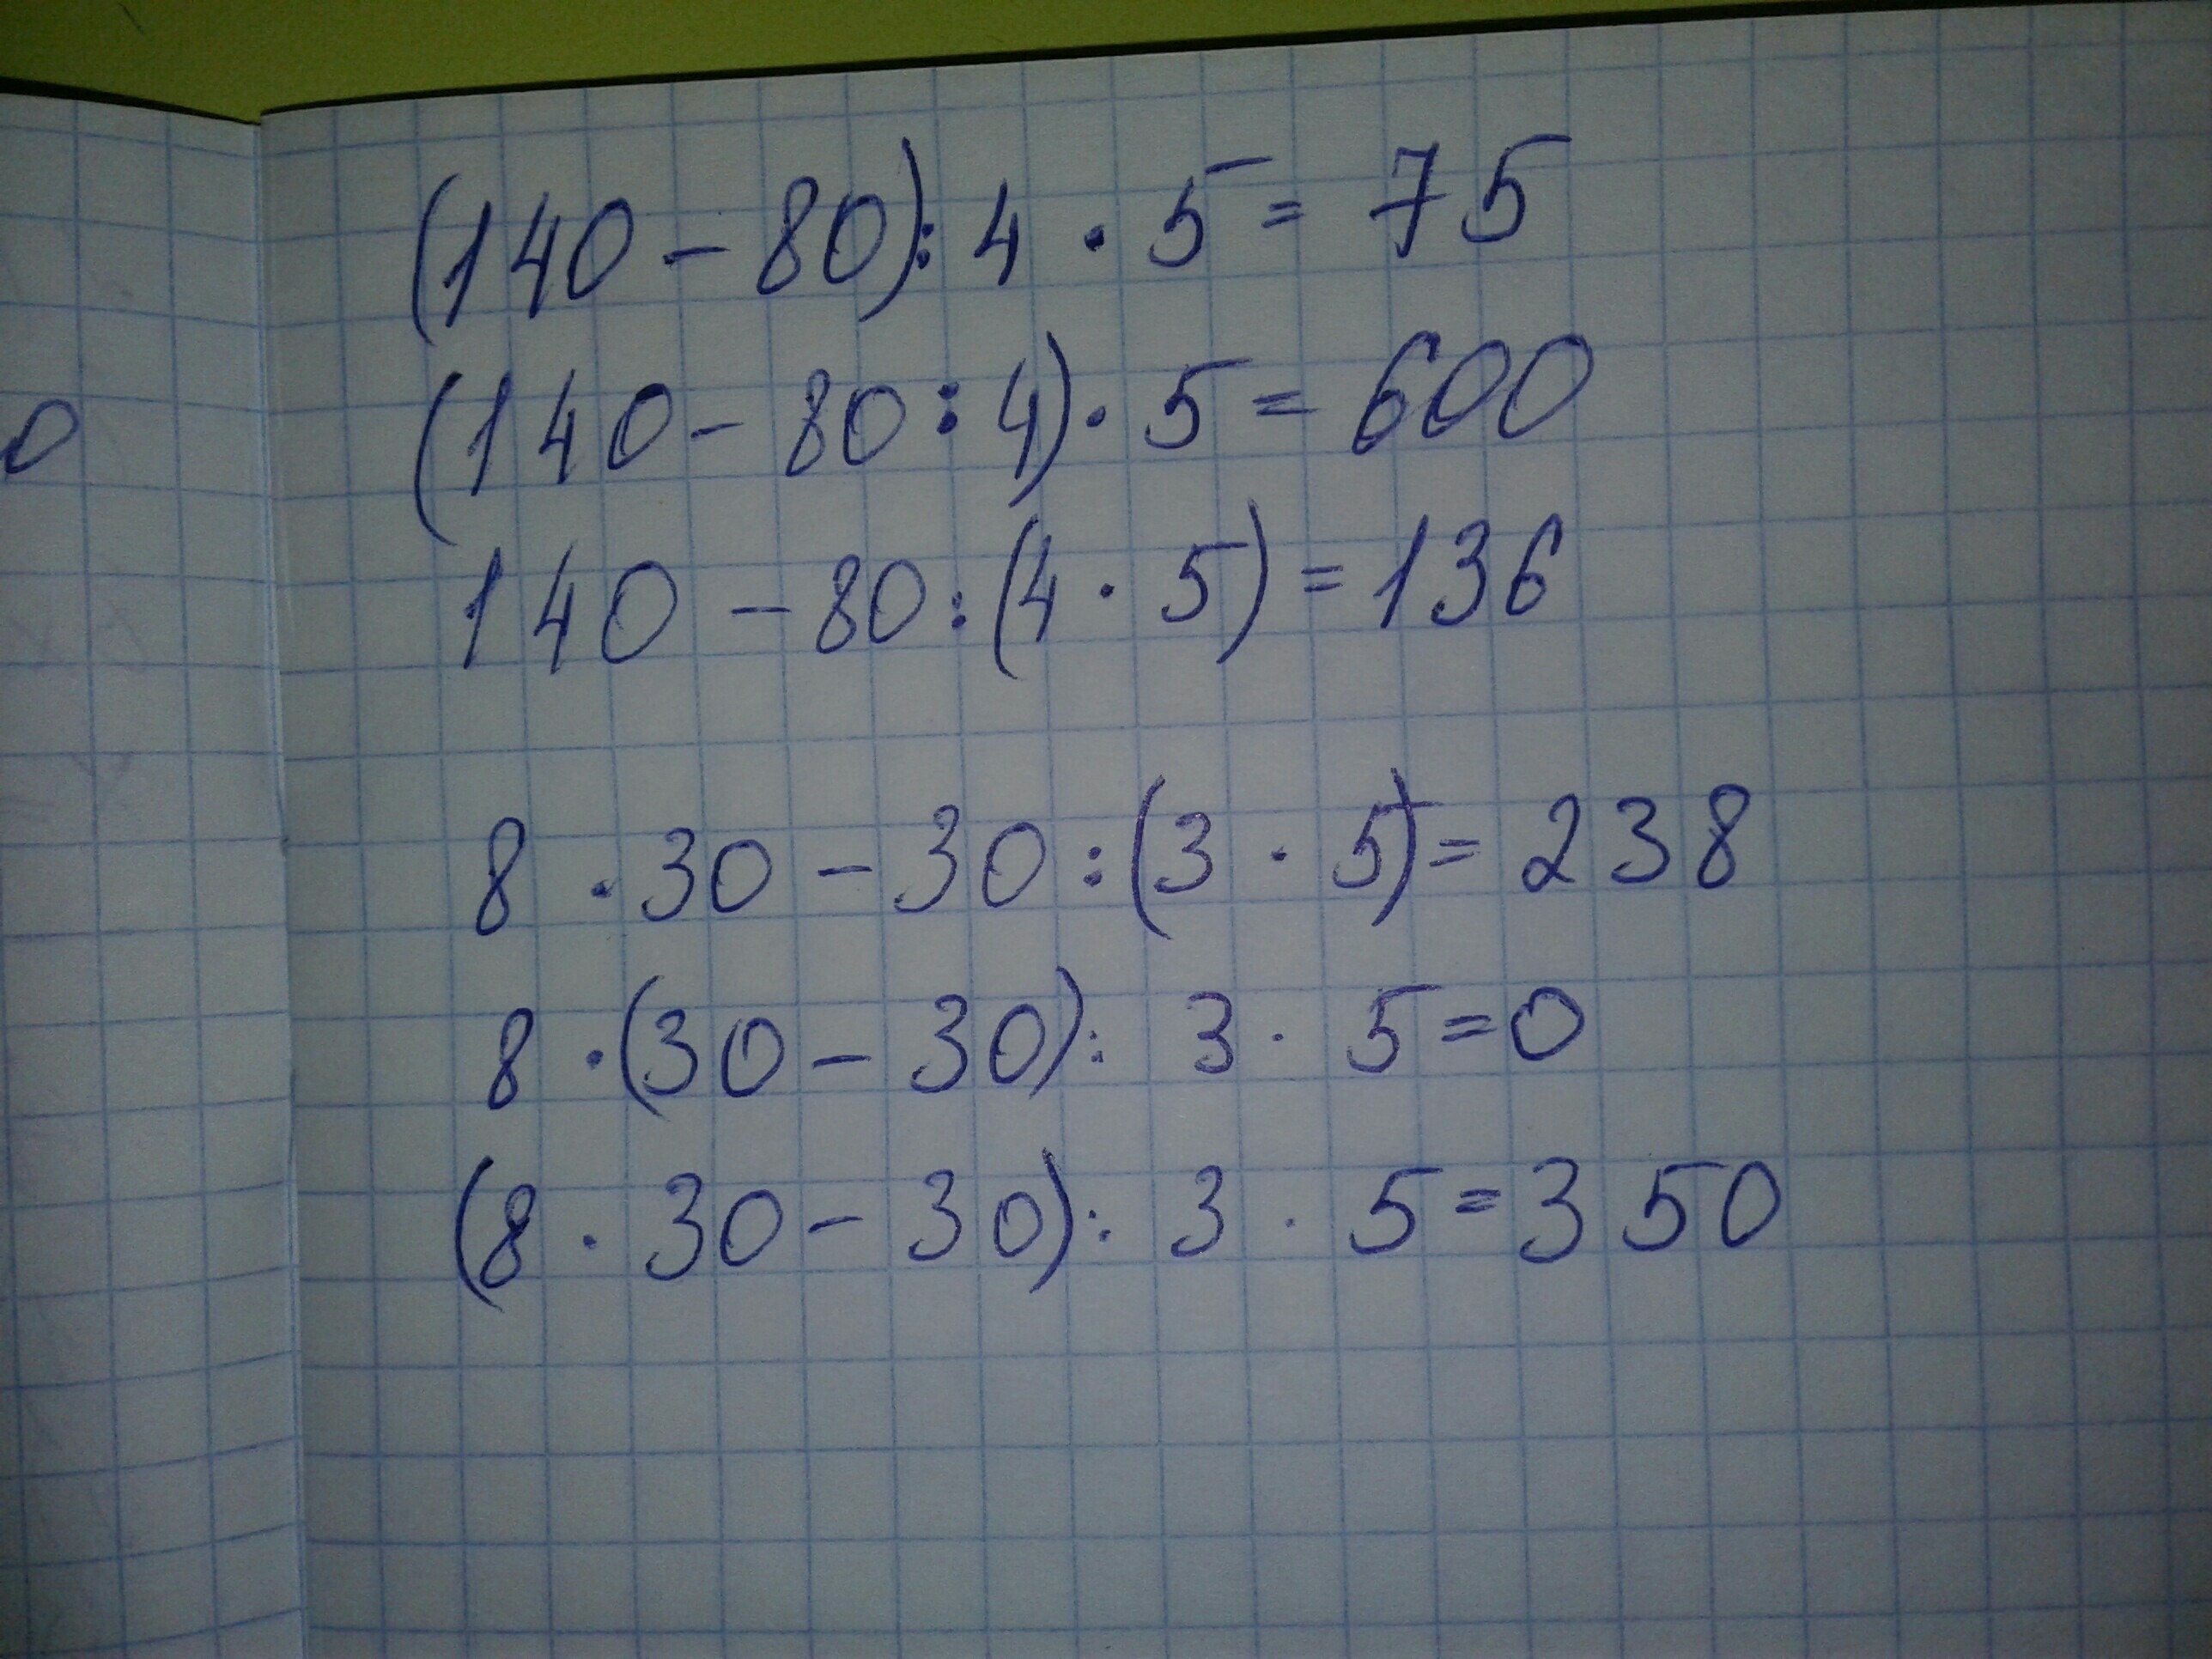 (140 - 80) : 4 · 5 = 75
0
(140 - 80 : 4) · 5 = 600
140 - 80 : (4 · 5) = 136
8 · 30 - 30 : (3 · 5) = 238
8 · (30 - 30) : 3 · 5 = 0
(8 · 30 - 30) : 3 · 5 = 350